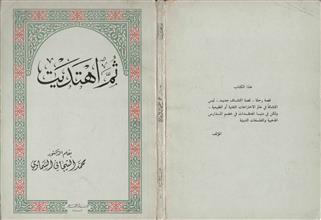 ثم اهتديت
بقلم الدكتور
محمد التيجاني السماوي
هذا الكتاب
قصة رحلة .. قصة اكتشاف جديد .. ليس
اكتشافا في عالم الاختراعات التقنية أو الطبيعية ،
ولكن في دنيا المعتقدات في خضم المدارس
المذهبية والفلسفات الدينية
المؤلف